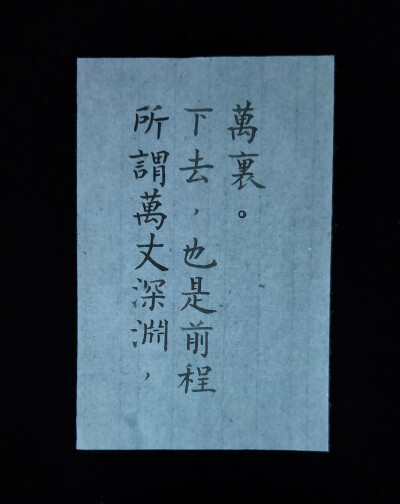 所謂萬丈深淵，
下去，也是前程
萬裏。